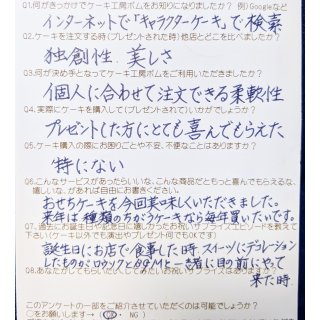 Q1.何がきっかけでケーキ工房ボムをお知りになりましたか？ 例)Googleなど
インターネットで「キャラクターケーキ」で検索
Q2.ケーキを注文する時(プレゼントされた時)他店とどこを比べましたか？
独創性、美しさ
Q3.何が決め手となってケーキ工房ボムをご利用いただきましたか？
個人に合わせて注文できる柔軟性
Q4.実際にケーキを購入して(プレゼントされて)いかがでしたか？
プレゼントした方にとても喜んでもらえた
Q5.ケーキ購入の際にお困りごとや不安、不便なことはありますか？
特にない
Q6.こんなサービスがあったらいいな、こんな商品だともっと喜んでもらえるな、
嬉しいな、があれば自由にお書きください。
おせちケーキを今回美味しくいただきました。
来年は種類の方がちがうケーキなら毎年買いたいです。
Q7.過去にお誕生日や記念日に嬉しかったお祝いサプライズエピソードを教えて
下さい(ケーキ以外でも演出やプレゼント何でもOKです)
誕生日にお店で食事した時、スイーツにデコレーション
したものがロウソクとBGMと一緒に目の前にやって
来た時
Q8.あなたがしてもらいたい、してみたいお祝いサプライズはありますか？
このアンケートの一部をご紹介させていただくのは可能でしょうか？
○をお願いします→ (OK ・ NG )